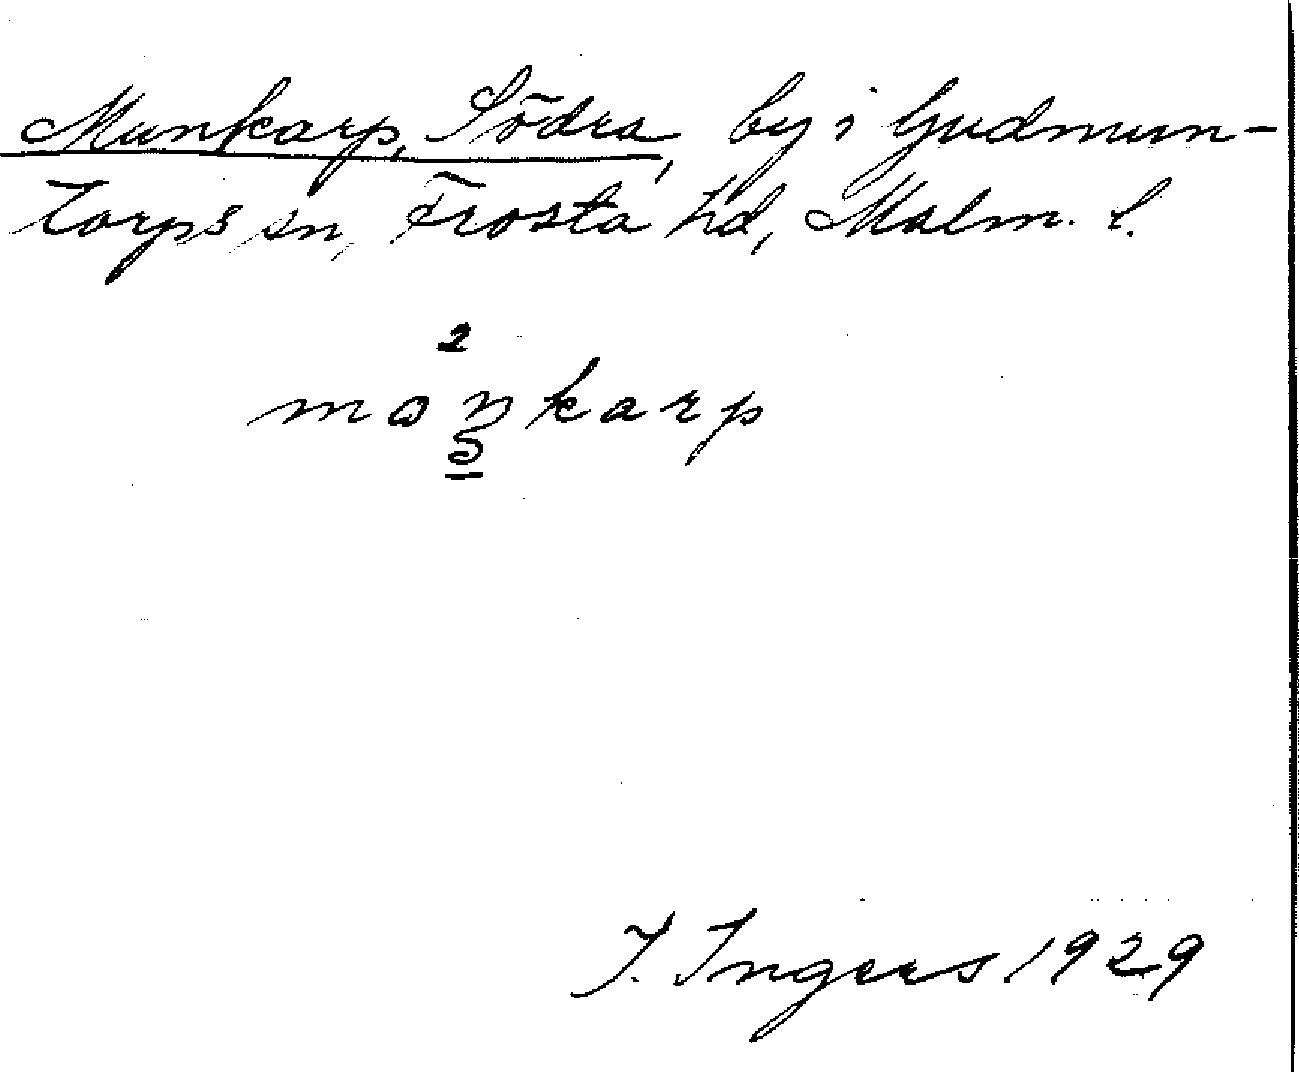 Munkarp, Södra, by i Gudmun-
torps sn, Frosta hd, Malm. l.
2
moŋkarp
5
I. Ingers 1929